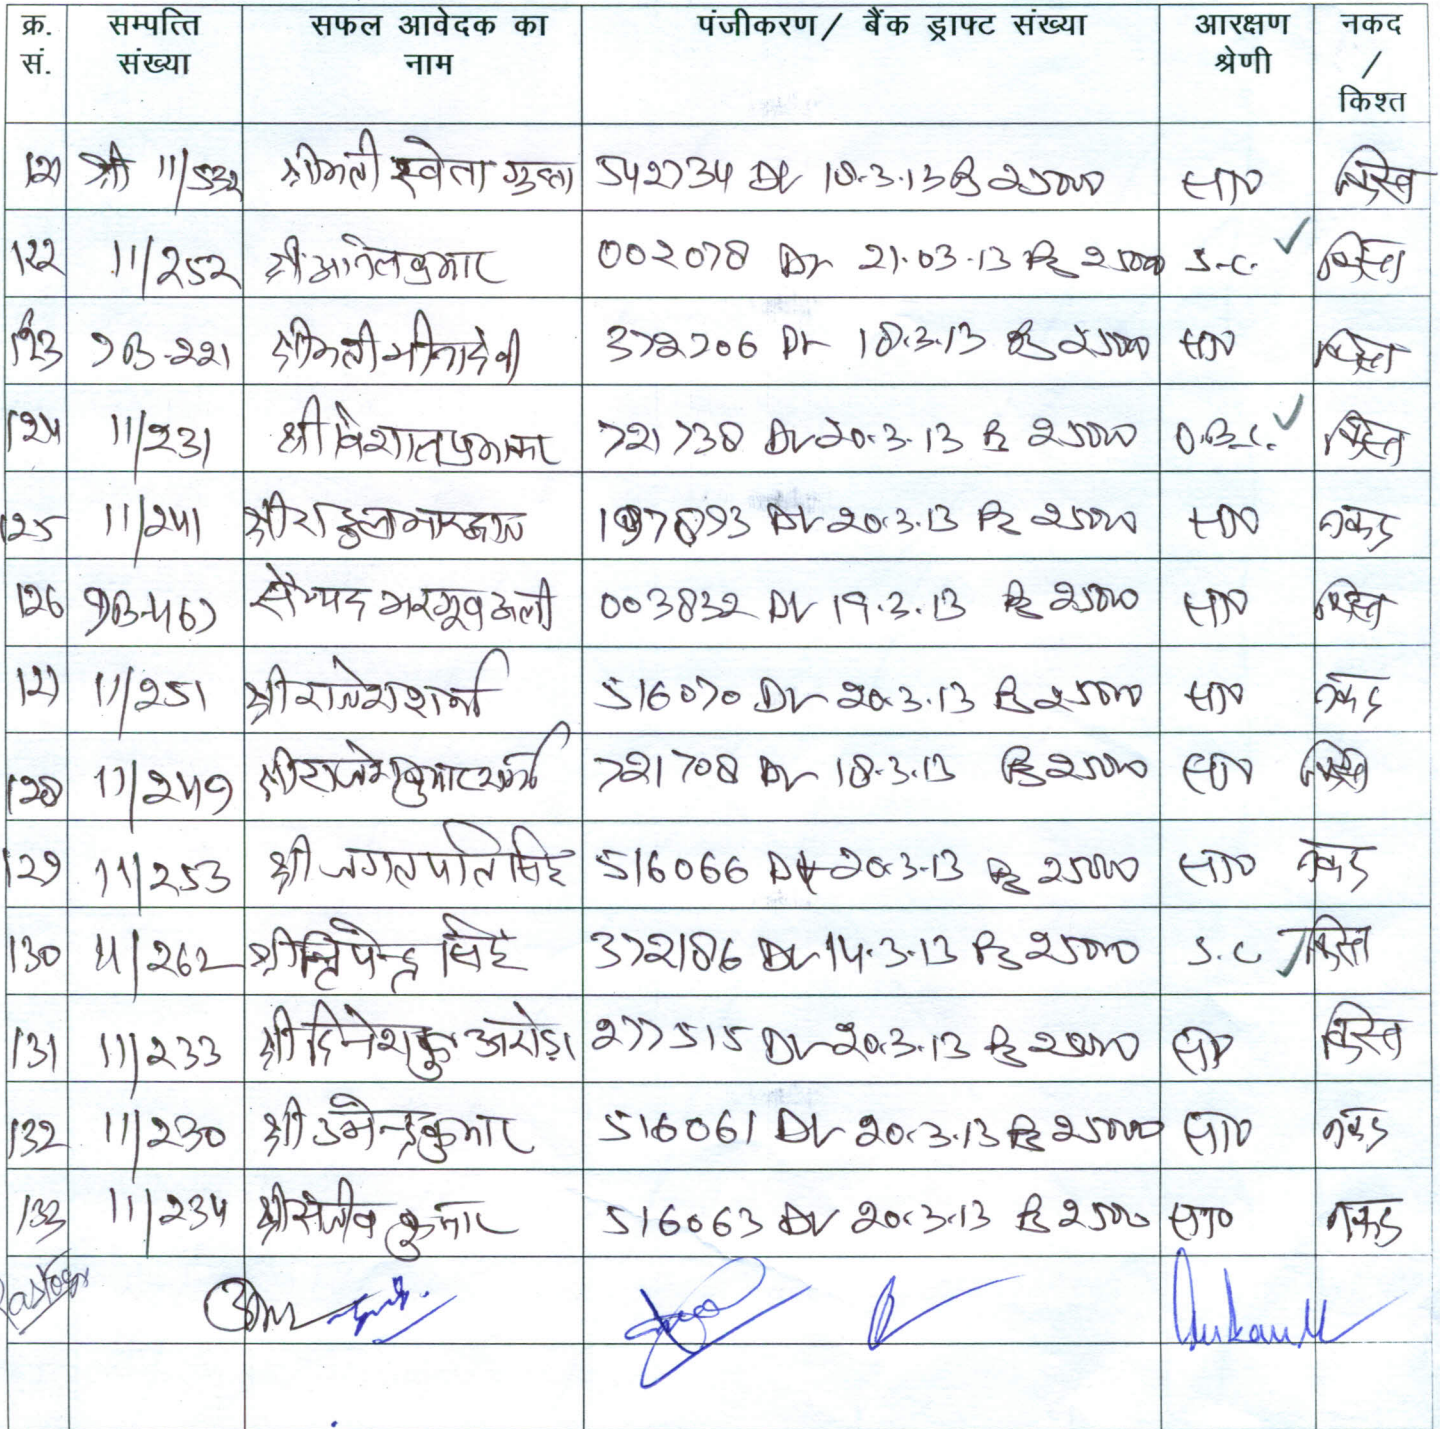 क्र. सं. सम्पत्ति संख्या सफल आवेदक का नाम पंजीकरण/ बैंक ड्राफ्ट संख्या आरक्षण श्रेणी नकद / किश्त
121 श्री 11/532 श्रीमती श्वेता गुप्ता 542734 Dt 18.3.13 Rs 25000 सा० किस्त
122 11/252 श्री अनिल कुमार 002078 Dt 21.03.13 Rs 25000 S.C. किस्त
123 9B-221 श्रीमती मीना देवी 372706 Dt 18.3.13 Rs 25000 सा० किस्त
124 11/231 श्री विशाल 721738 Dt 20.3.13 Rs 25000 O.B.C. किस्त
125 11/241 श्री राहुल भारद्वाज Dt 20.3.13 Rs 25000 सा० नकद
126 9B-467 सैय्यद अली 003832 Dt 19.3.13 Rs 25000 सा० किस्त
127 11/251 श्री राजेश शर्मा 516070 Dt 20.3.13 Rs 25000 सा० नकद
128 11/249 श्री कुमार शर्मा 721708 Dt 18.3.13 Rs 25000 सा० किस्त
129 11/253 श्री जगत पति सिंह 516066 Dt 20.3.13 Rs 25000 सा० नकद
130 11/262 श्री सिंह 372186 Dt 14.3.13 Rs 25000 S.C. किस्त
131 11/233 श्री दिनेश कु० अरोड़ा 277515 Dt 20.3.13 Rs 25000 सा० किस्त
132 11/230 श्री उमेन्द्र कुमार 516061 Dt 20.3.13 Rs 25000 सा० नकद
133 11/234 श्री संजीव कुमार 516063 Dt 20.3.13 Rs 2500 सा० नकद